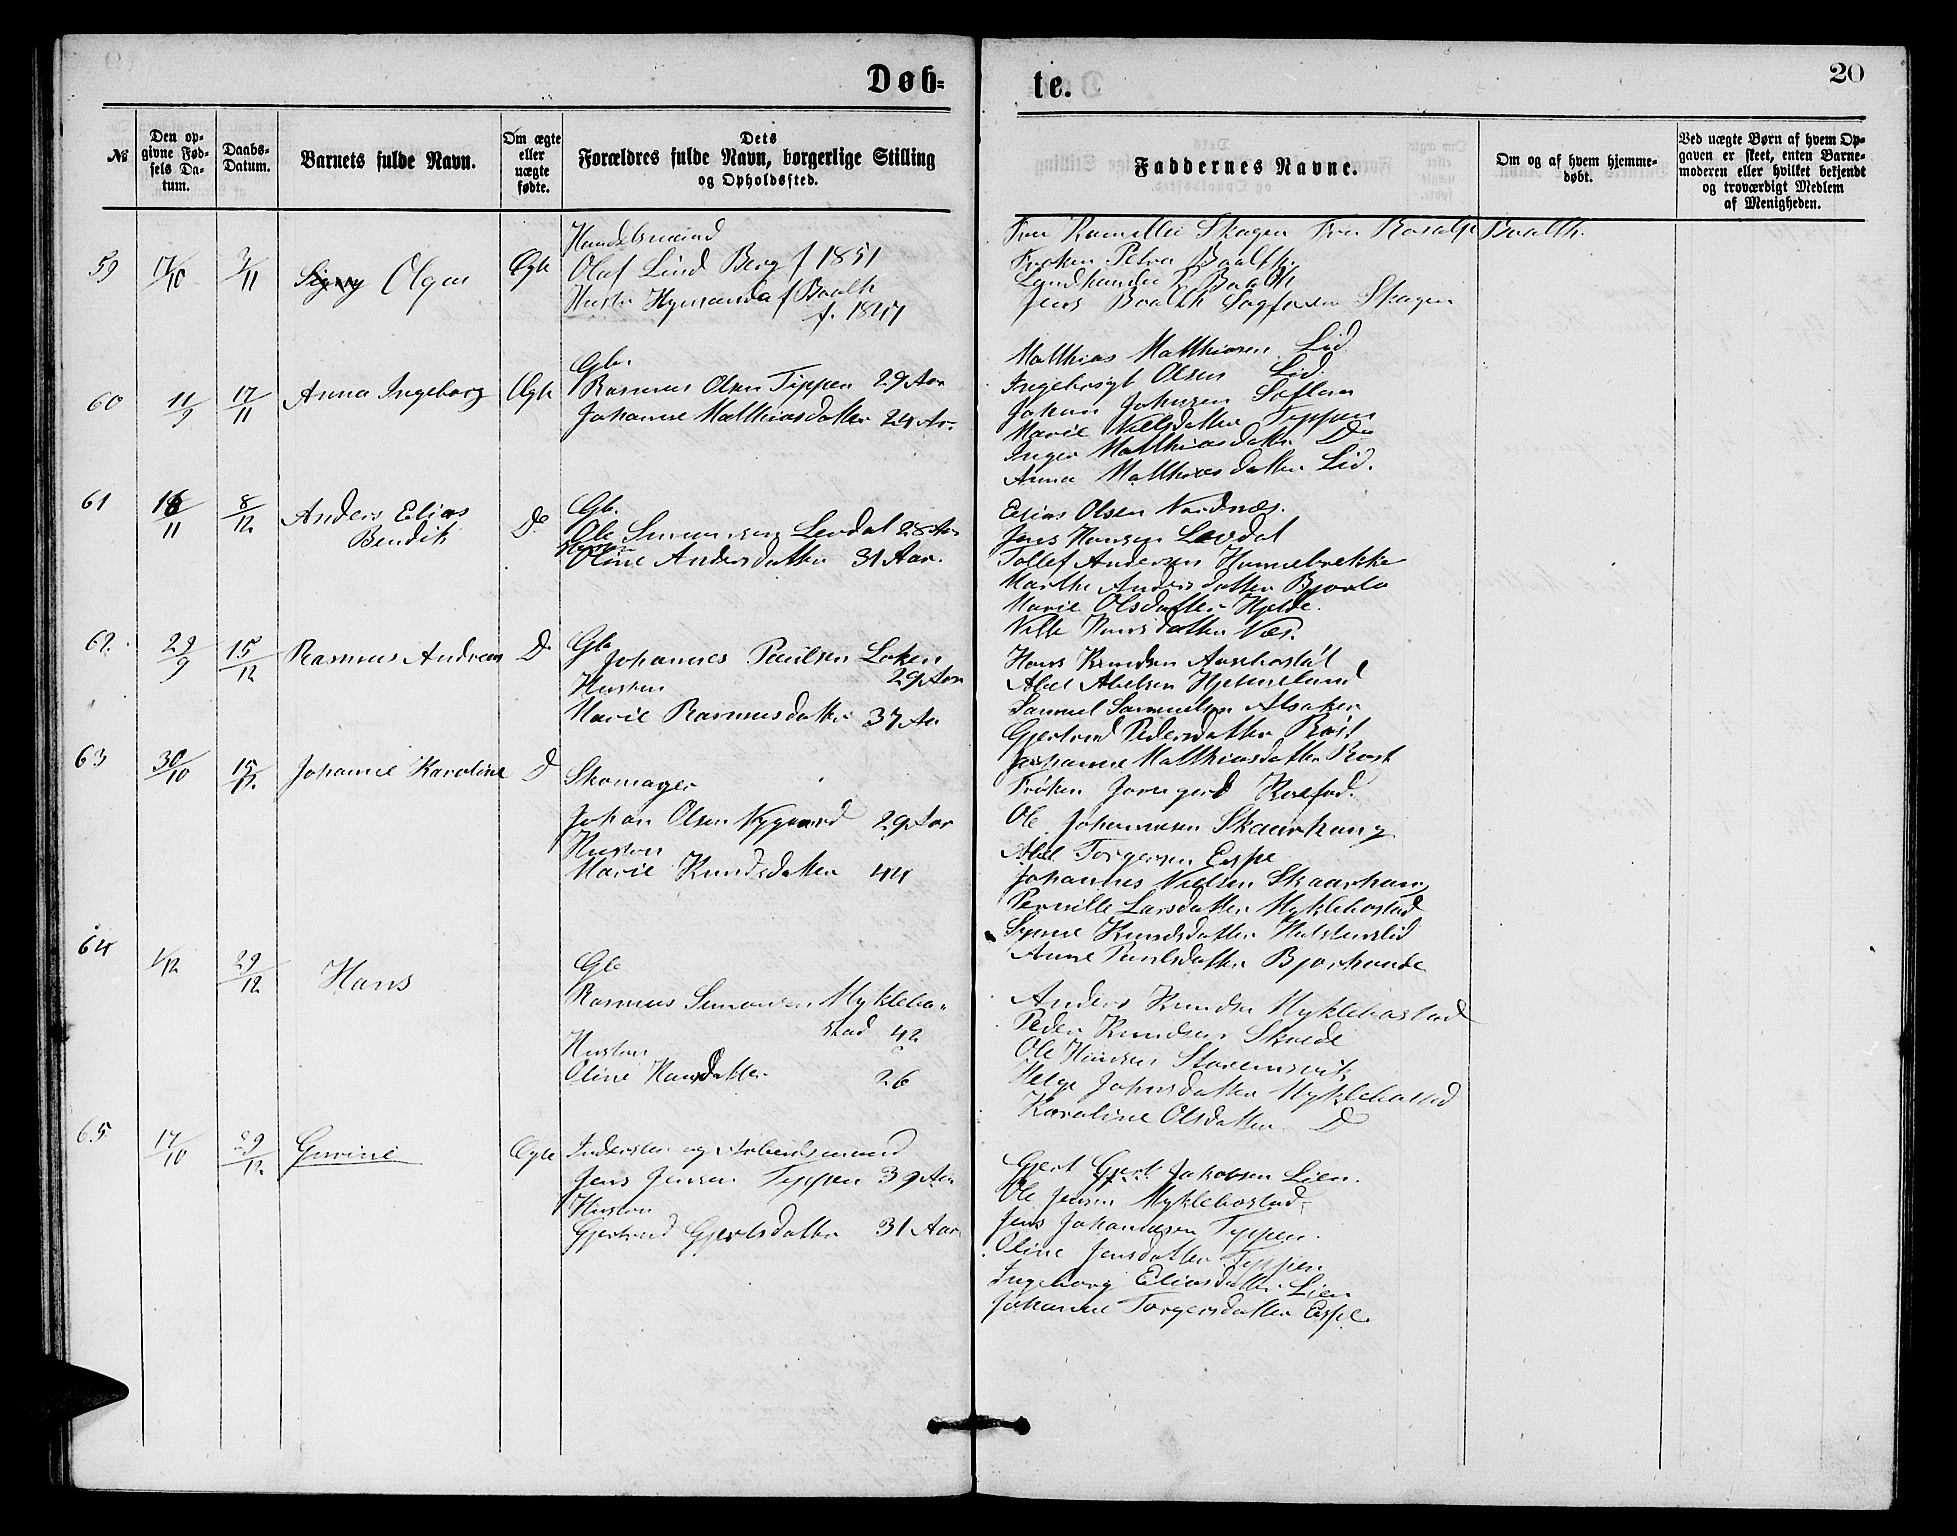 Døb=
te.
20
№
Den opgivne Fødsels Datum.
Daabs-Datum.
Barnets fulde Navn.
Om ægte eller uægte fødte.
Dets
Forældres fulde Navn, borgerlige Stilling
og Opholdssted.
Faddernes Navne.
Om og af hvem hjemmedøbt.
Ved uægte Børn af hvem Opgaven er skeet, enten Barnemoderen eller hvilket bekjendt og troværdigt Medlem af Menigheden.
Handelsmand
59 17/10 3/11 Signy Olga Ægte Olaf Lind Berg f 1851
f. 1847
Petra Baalth
Jens Baalth Skagen
Gbr
60 11/9 17/11 Anna Ingeborg Ægte Rasmus Olsen Tippen 29 Aar
Johanne Matthiasdatter 24 Aar
Matthias Matthiasen Lid
Olsen Lid.
Johan Johnsen
Marie Nilsdatter Tippen
Inger Matthiasdatter Do
Anna Matthiasdatter Lid.
61 16/11 8/12 Anders Elias
Bendik
Do
Gb.
Ole Simonsen Levdal 28 Aar
Hustru
Oline Andersdatter 31 Aar.
Elias Olsen Nordnæs.
Jens Hansen Levdal
Tollef Andersen Hunnebrekke
Marthe Andersdatter Bjorlo
Marie Olsdatter Hjelde.
62. 29/9 15/12 Rasmus Andreas Do
Gb
Johannes Paulsen Loken
29 Aar
Hustru
Marie Rasmusdatter 37 Aar
Hans Knudsen
Abel Abelsen Hjelmeland
Samuel Samuelsen Alsaker
Gjertrud Pedersdatter Røst
63 30/10 15/12 Johanne Karoline D
Skomager
Johan Olsen Nygaard 29 Aar
Hustru
Marie Knudsdatter 44
Johanne Matthiasdatter Rost
Frøken
Ole Johannesen Skaarhaug
Abel Torgersen Espe
Johannes Nielsen Skaarhaug
Pernille Larsdatter Myklebostad
Synne Knudsdatter
Anne Paulsdatter
64 1/12 29/12 Hans
Gb
Rasmus Simonsen Myklebo-
stad 42
Hustru
Oline Hansdatter 26
Anders Knudsen Myklebostad
Peder Knudsen Skrede
Ole Hansen
Helge Johnsdatter Myklebostad
Karoline Olsdatter D
65 17/10 29/12 Gurine Ægte
Inderst og Arbeidsmand
Jens Jensen Tippen 39 Aar
Hustru
Gjertrud Gjertsdatter 31 Aar
Gjert Gjert Jakobsen Lien.
Ole Jensen Myklebostad
Jens Johannesen Tippen.
Oline Jensdatter Tippen
Ingeborg Eliasdatter Lien
Johanne Torgersdatter Espe.